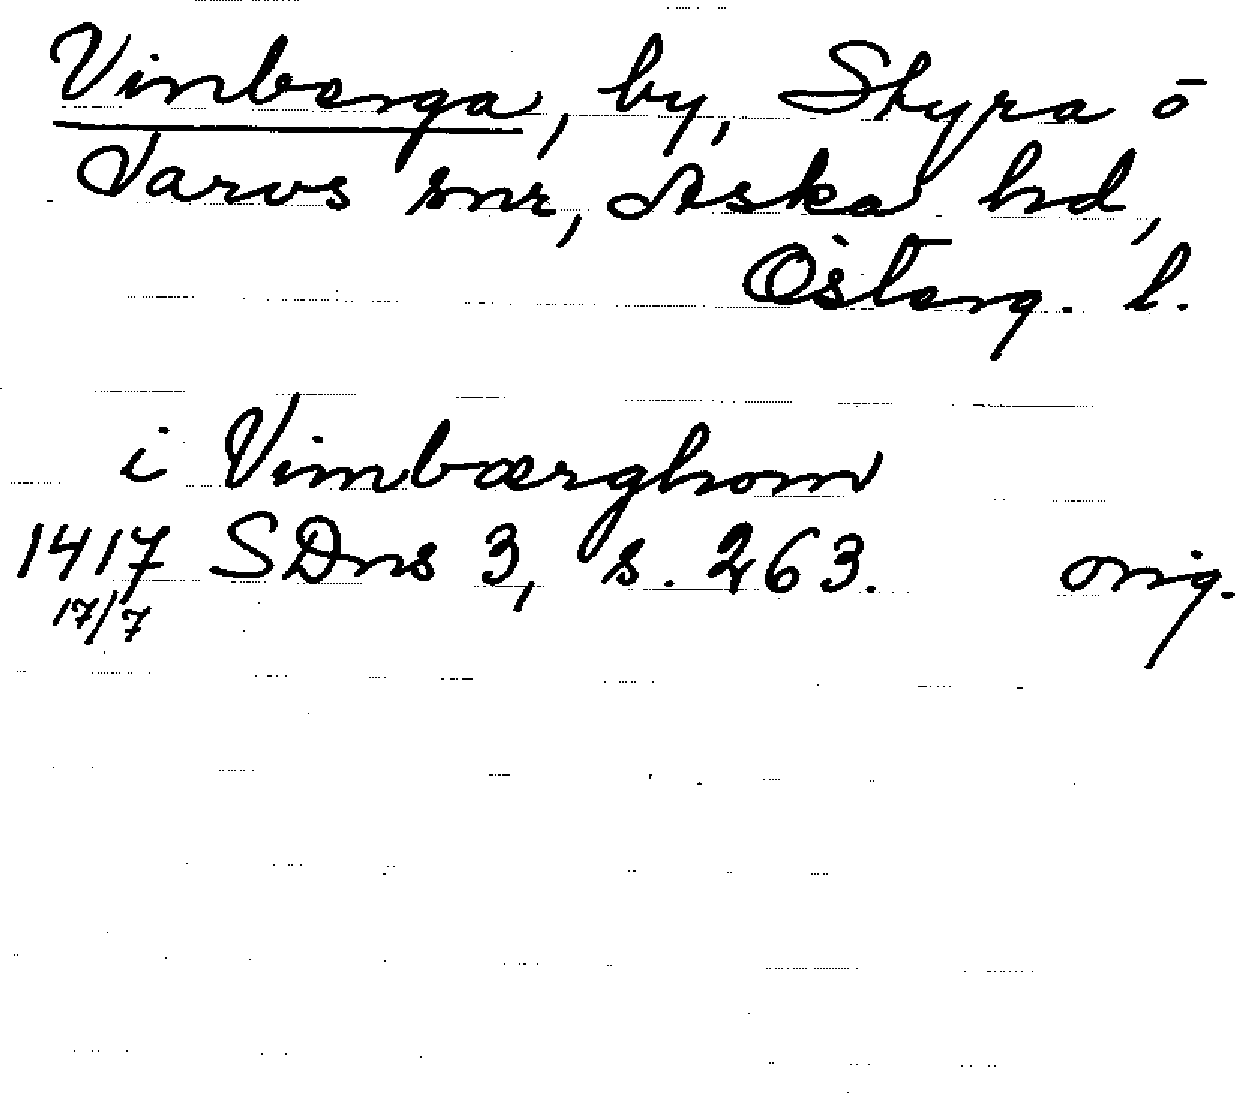 Vinberga, by, Styra o
Varvs snr, Aska hd,
Österg. l.
i Vimbærghom
1417 SDns 3, s. 263. orig.
17/7